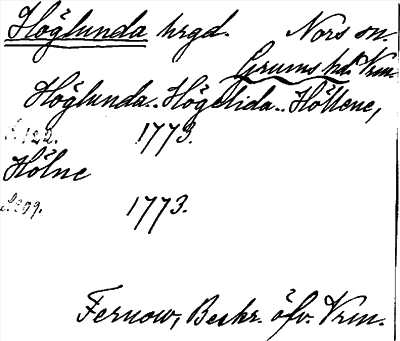 Höglunda hrgd. Nors sn
Grums hd. Vrm.
Höglunda.. Högelida.. Höltene,
S. 122. 1773.
Hölne
S. 209. 1773.
Fernow, Beskr. öfv. Vrm.